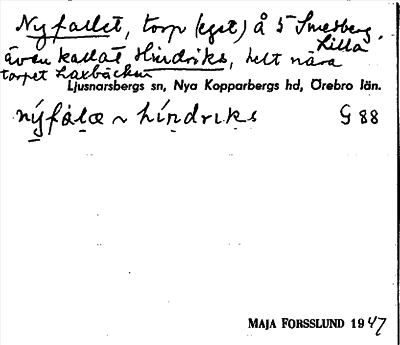 Nyfallet, torp (eget) å 5 Smedberg,
även kallat Hindriks, helt nära Lilla
torpet Laxbäcken
Ljusnarsbergs sn, Nya Kopparbergs hd, Örebro län.
nýfalæ ~ híndriks G 88
MAJA FORSSLUND 1947